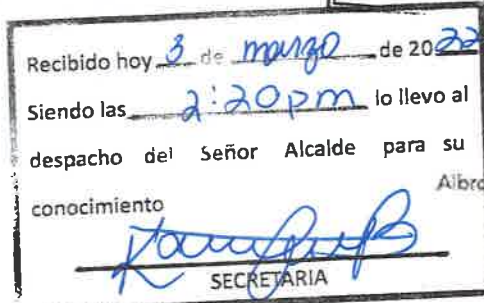 Recibido hoy 3 de marzo de 2022
Siendo las 2:20pm lo llevo al
despacho del Señor Alcalde para su
conocimiento
Albro
SECRETARIA